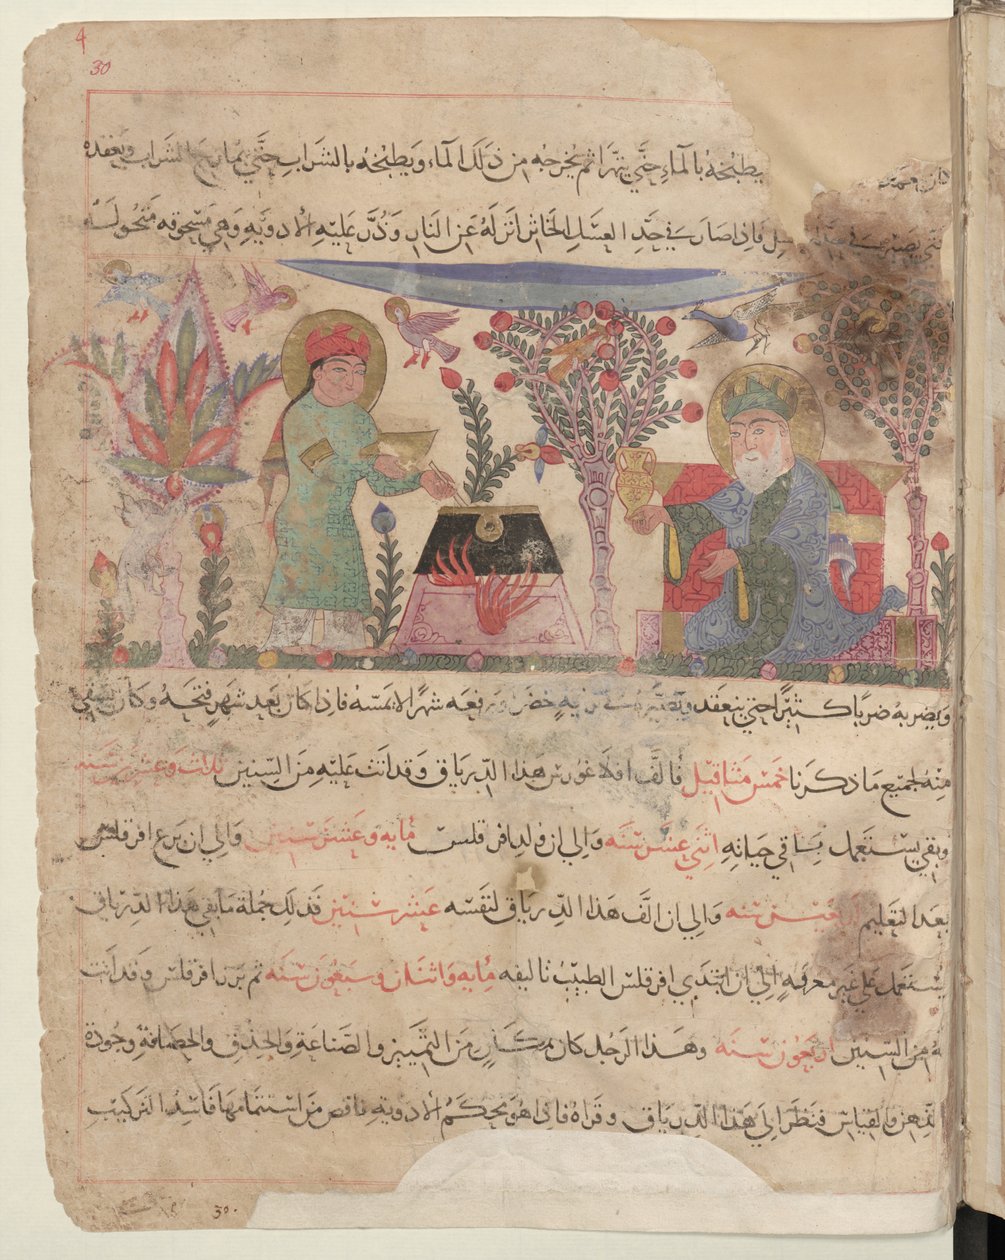 4
30
يطبخه بالماء حتى يتهرا ثم يخرجه من ذلك الماء ويطبخه بالشراب حتى يمازج الشراب ويعقده
فاذا صار في حد العسل الخاثر انزله عن النار وذر عليه الادويه وهي مسحوقه منخوله
ويضربه ضربا كثيرا حتى ينعقد ويصيره في خضرا ويرفعه شهرا لا يمسه فاذا كان بعد شهر فتحه وكان يسقي
منه لجميع ما ذكرنا خمس مثاقيل فالف افلاغورس هذا الدرياق وقد اتت عليه من السنين ثلاث وعشرين سنه
وبقي يستعمل باقي حياته اثني عشر سنه والي ان ولد افرقلس مايه وعشر سنين والي ان برع افرقلس
بعد التعليم سنه والي ان الف هذا الدرياق لنفسه عشر سنين فذلك جملة ما بقي هذا الدرياق
يستعمل علي غير معرفه الي ان ابتدي افرقلس الطبيب تاليفه مايه واثنان وسبعون سنه ثم برز افرقلس وقد اتت
من السنين اربعون سنه وهذا الرجل كان بمكان من التمييز والصناعة والحذق والحصافة وجودة
الذهن والقياس فنظر الي هذا الدرياق وقراه فاذا هو محكم الادويه ناقص من استتمامها فاسد التركيب
30.